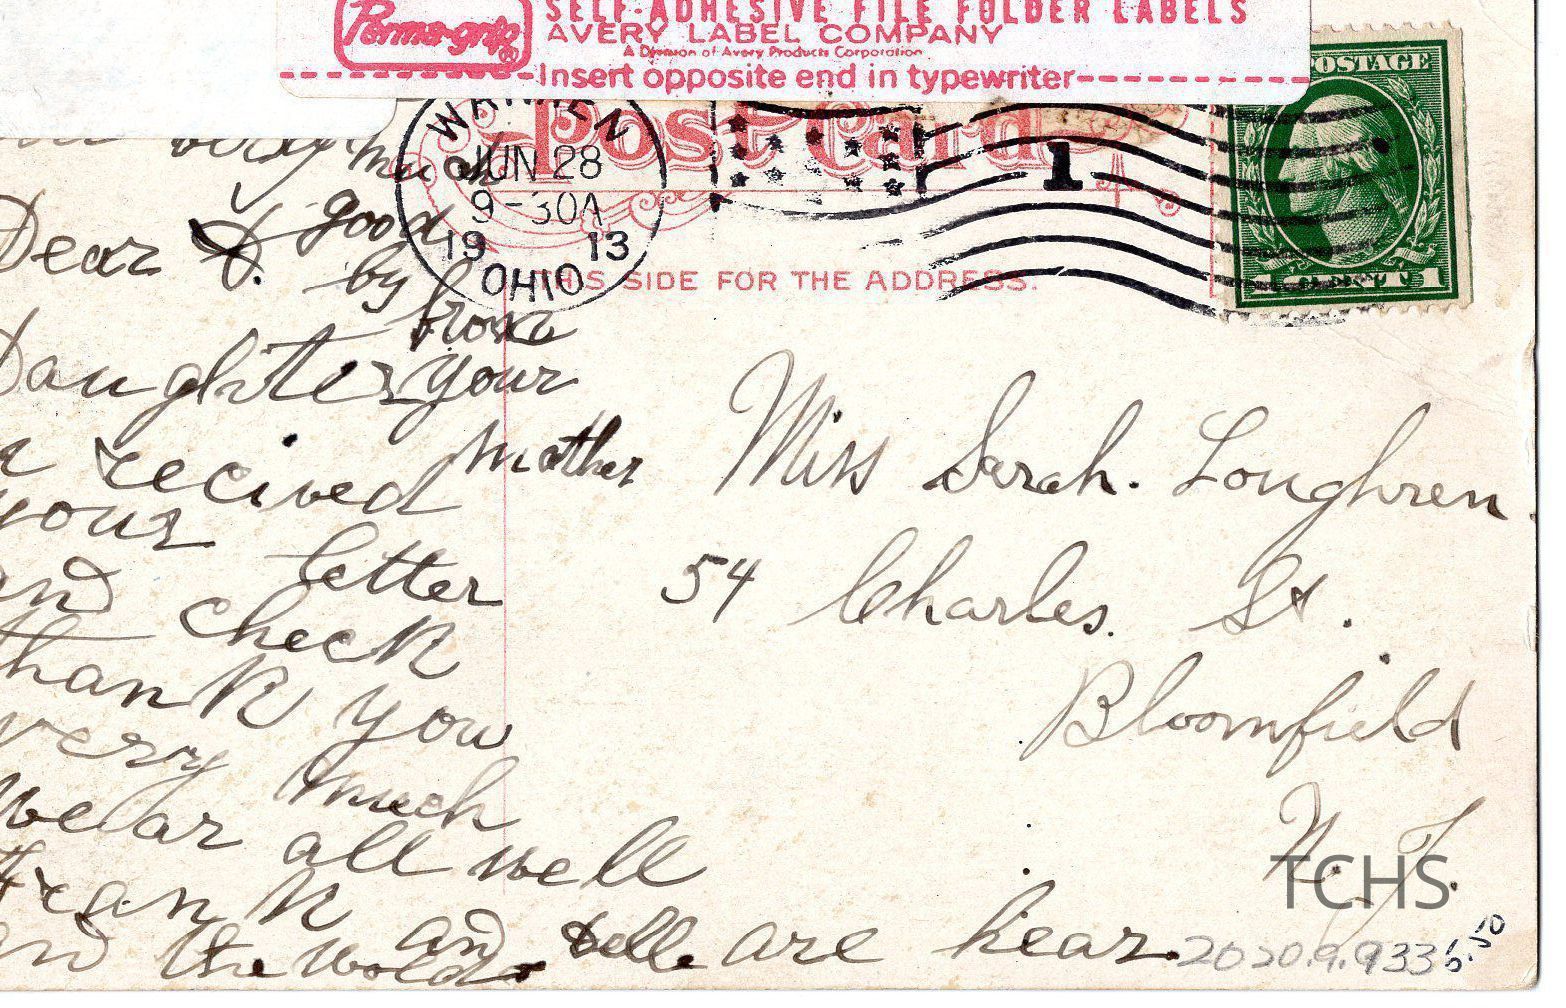 Perma-grip®
SELF-ADHESIVE FILE FOLDER LABELS
AVERY LABEL COMPANY
A Division of Avery Products Corporation
Insert opposite end in typewriter
POSTAGE
1 1
Post Card
THIS SIDE FOR THE ADDRESS.
WARREN
JUN 28
9-30A
19 13
OHIO
1
much
good
by
from
your
mother
Dear
Daughter
recived
your letter
and check
thank you
very much
we ar all well
Frank and Belle are hear.
and the
Miss Sarah. Loughren.
54 Charles. St.
Bloomfield
N. J.
TCHS
2020.9.933
6.50